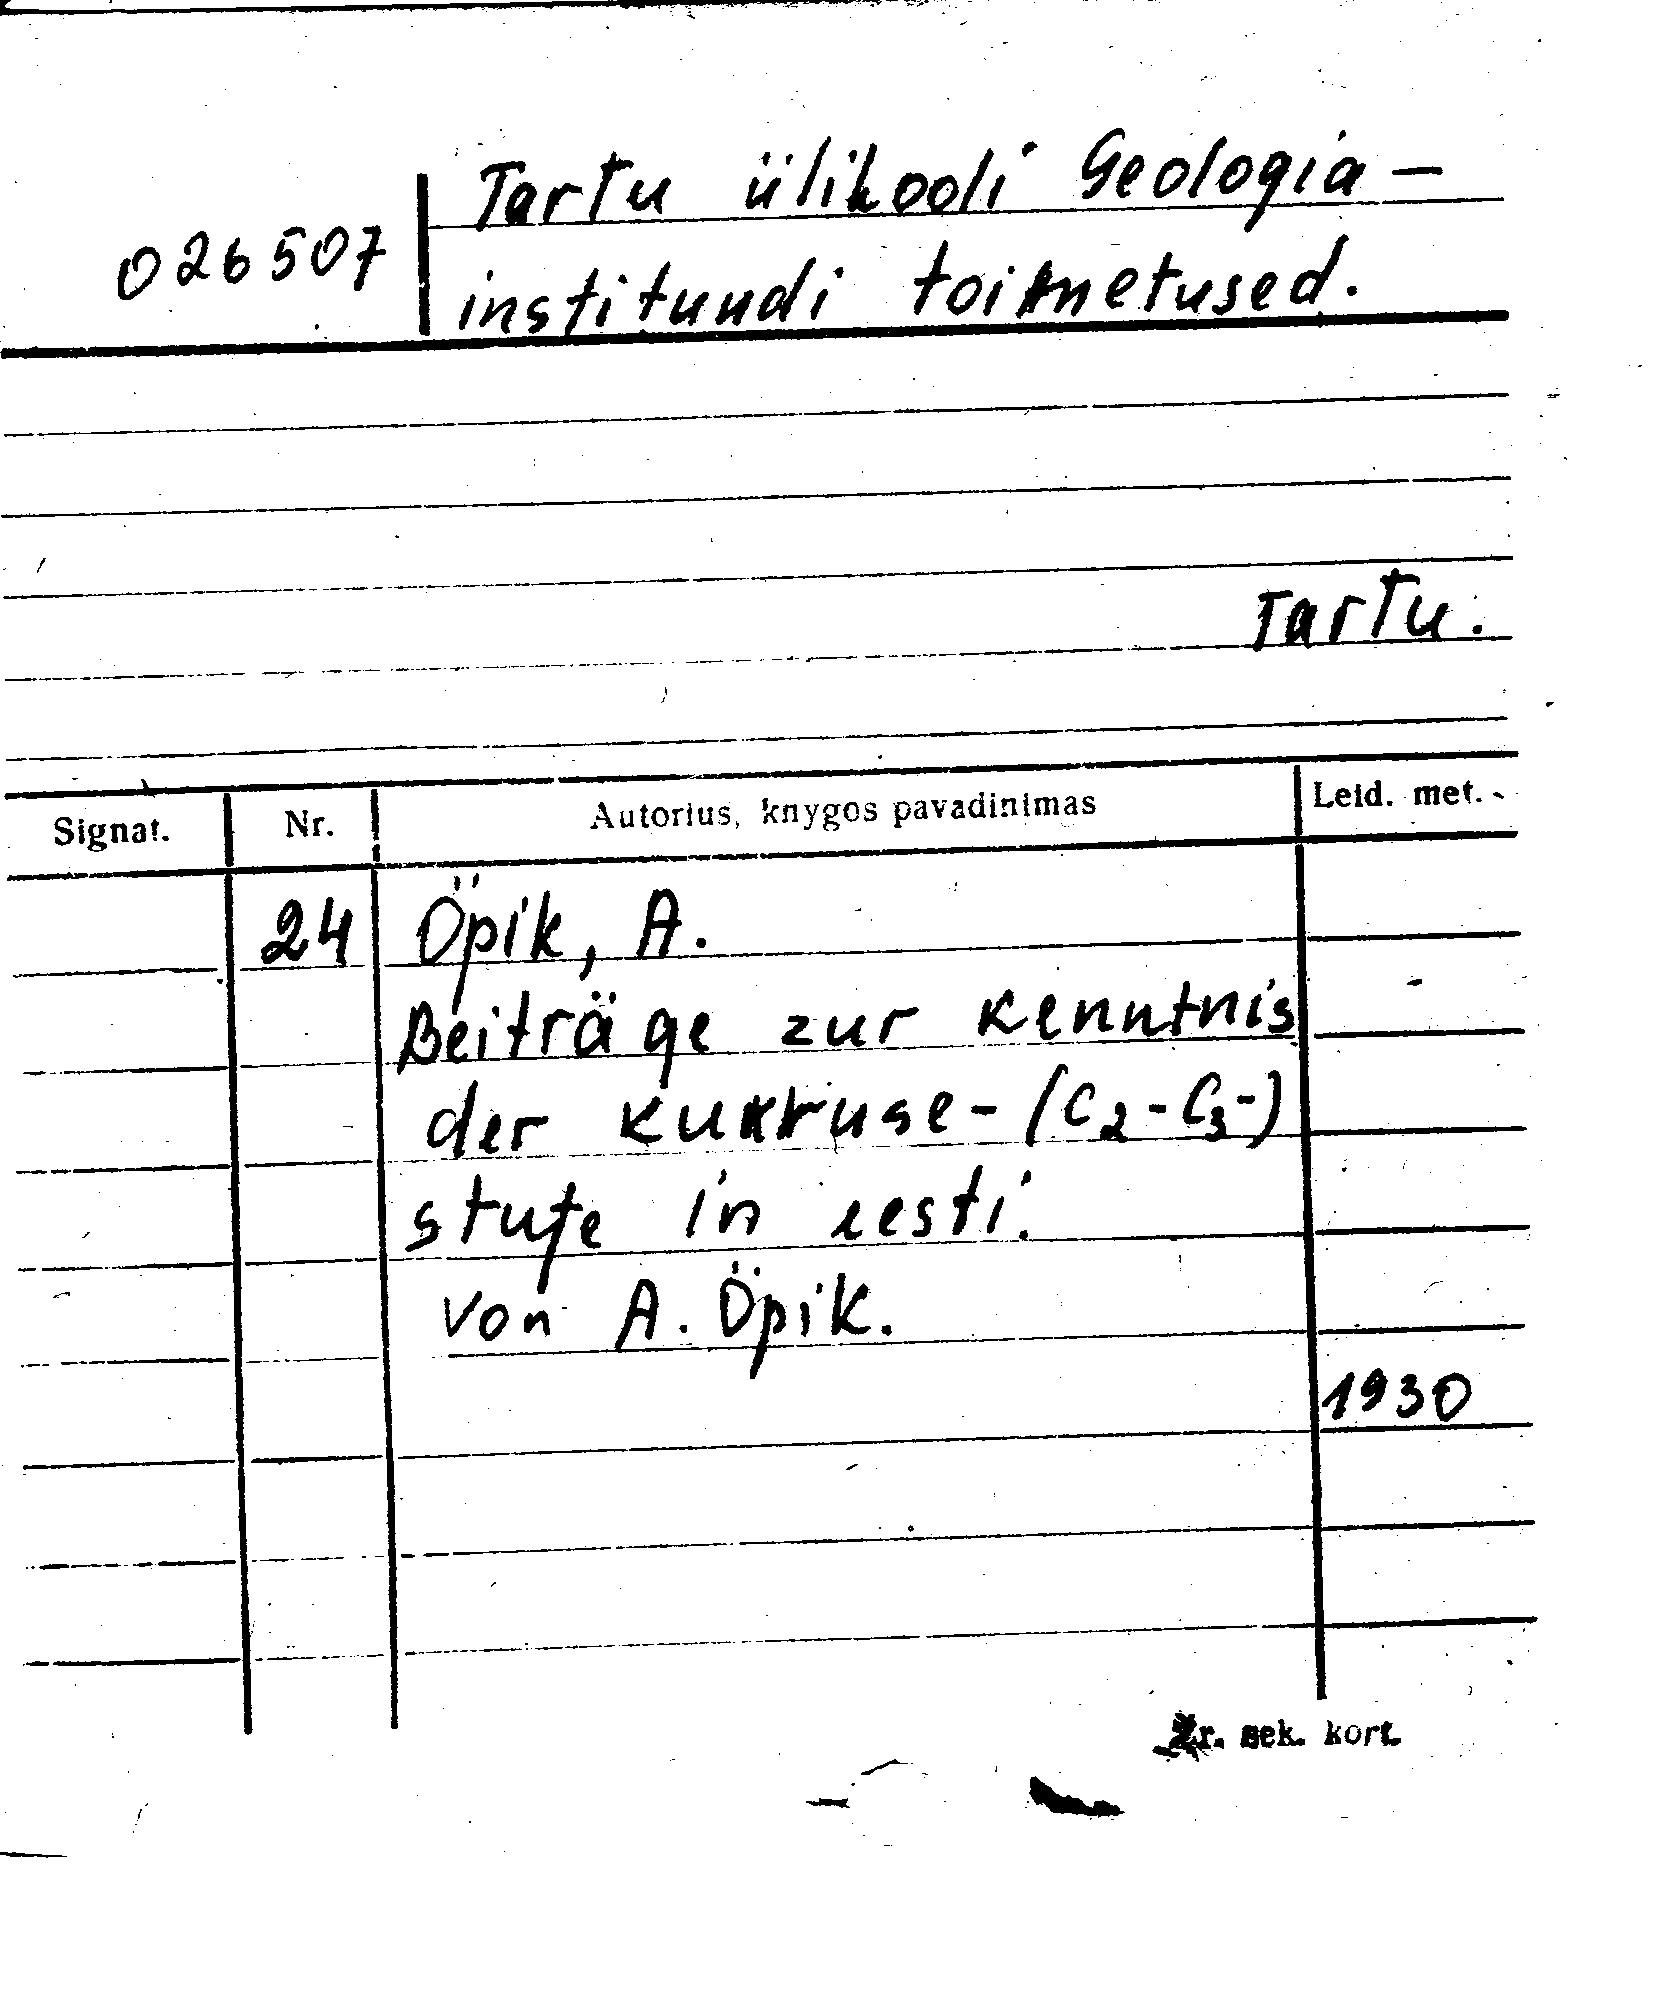 Tartu ülikooli Geologia-
026507
instituudi toimetused.
Tartu.
Signat. Nr. Autorius, knygos pavadinimas Leid. met.
24 Öpik, A.
Beiträge zur Kenntnis
der kukruse-(C2-C3-)
stufe in eesti.
von A. Öpik.
1930
Žr. sek. kort.